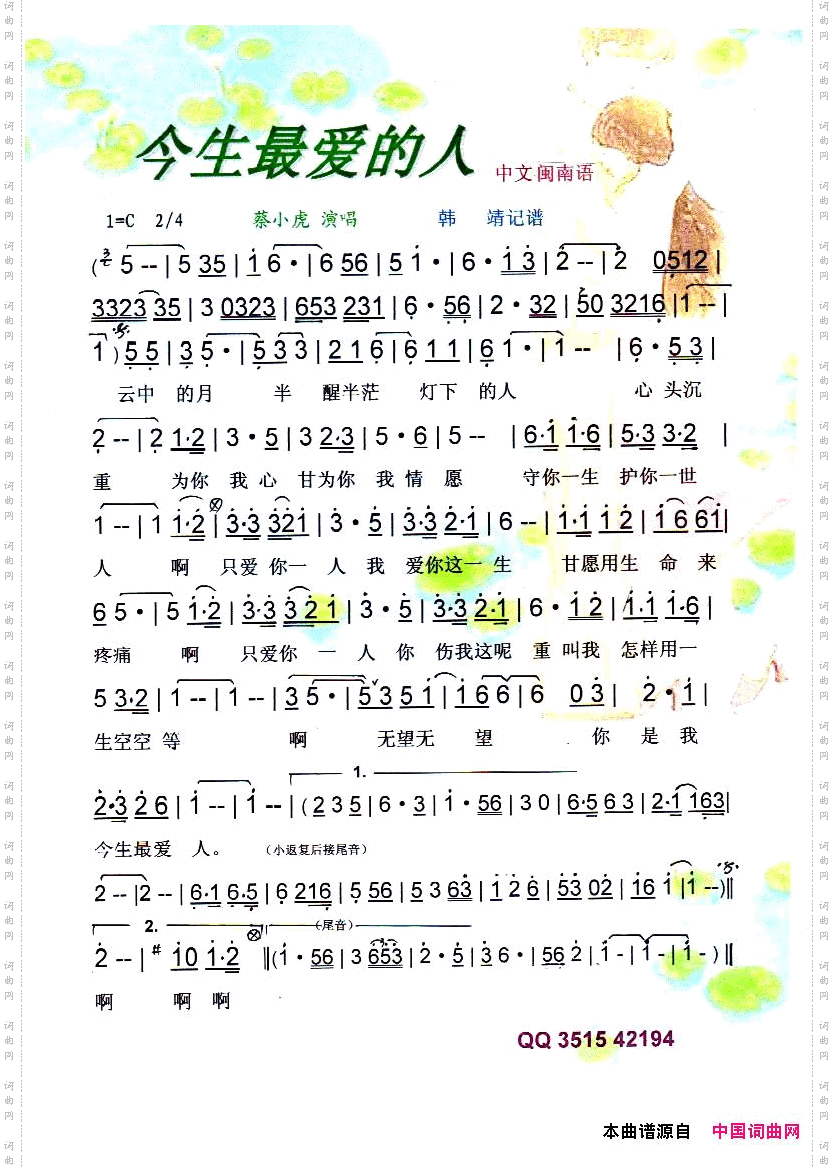 今生最爱的人 中文闽南语
1=C 2/4 蔡小虎 演唱 韩 靖记谱
(5 -- | 5 35 | 1 6 · | 6 56 | 5 1 · | 6 · 13 | 2 -- | 2 0512 |
3323 35 | 3 0323 | 653 231 | 6 · 56 | 2 · 32 | 50 3216 | 1 -- |
1 ) 5 5 | 3 5 · | 5 3 3 | 2 1 6 | 6 1 1 | 6 1 · | 1 -- | 6 · 5 3 |
云中 的月 半 醒半茫 灯下 的人 心 头沉
2 -- | 2 1·2 | 3 · 5 | 3 2·3 | 5 · 6 | 5 -- | 6·1 1·6 | 5·3 3·2 |
重 为你 我 心 甘为你 我 情 愿 守你一生 护你一世
1 -- | 1 1·2 | 3·3 321 | 3 · 5 | 3·3 2·1 | 6 -- | 1·1 1 2 | 1 6 61 |
人 啊 只爱 你一 人 我 爱你这一 生 甘愿用生 命 来
6 5 · | 5 1·2 | 3·3 3 2 1 | 3 · 5 | 3·3 2·1 | 6 · 1 2 | 1·1 1·6 |
疼痛 啊 只爱你 一 人 你 伤我这呢 重 叫我 怎样用一
5 3·2 | 1 -- | 1 -- | 3 5 · | 5 3 5 1 | 1 6 6 | 6 0 3 | 2 · 1 |
生空空 等 啊 无望无 望 你 是 我
1.
2·3 2 6 | 1 -- | 1 -- | ( 2 3 5 | 6 · 3 | 1 · 56 | 3 0 | 6·5 6 3 | 2·1 163 |
今生最爱 人。 (小返复后接尾音)
2 -- | 2 -- | 6·1 6·5 | 6 216 | 5 56 | 5 3 63 | 1 2 6 | 53 02 | 16 1 | 1 -- ) ‖
2. (尾音)
2 -- | # 10 1·2 ‖ ( 1 · 56 | 3 653 | 2 · 5 | 3 6 · | 56 2 | 1 - | 1 - | 1 - ) ‖
啊 啊 啊
QQ 3515 42194
本曲谱源自 中国词曲网